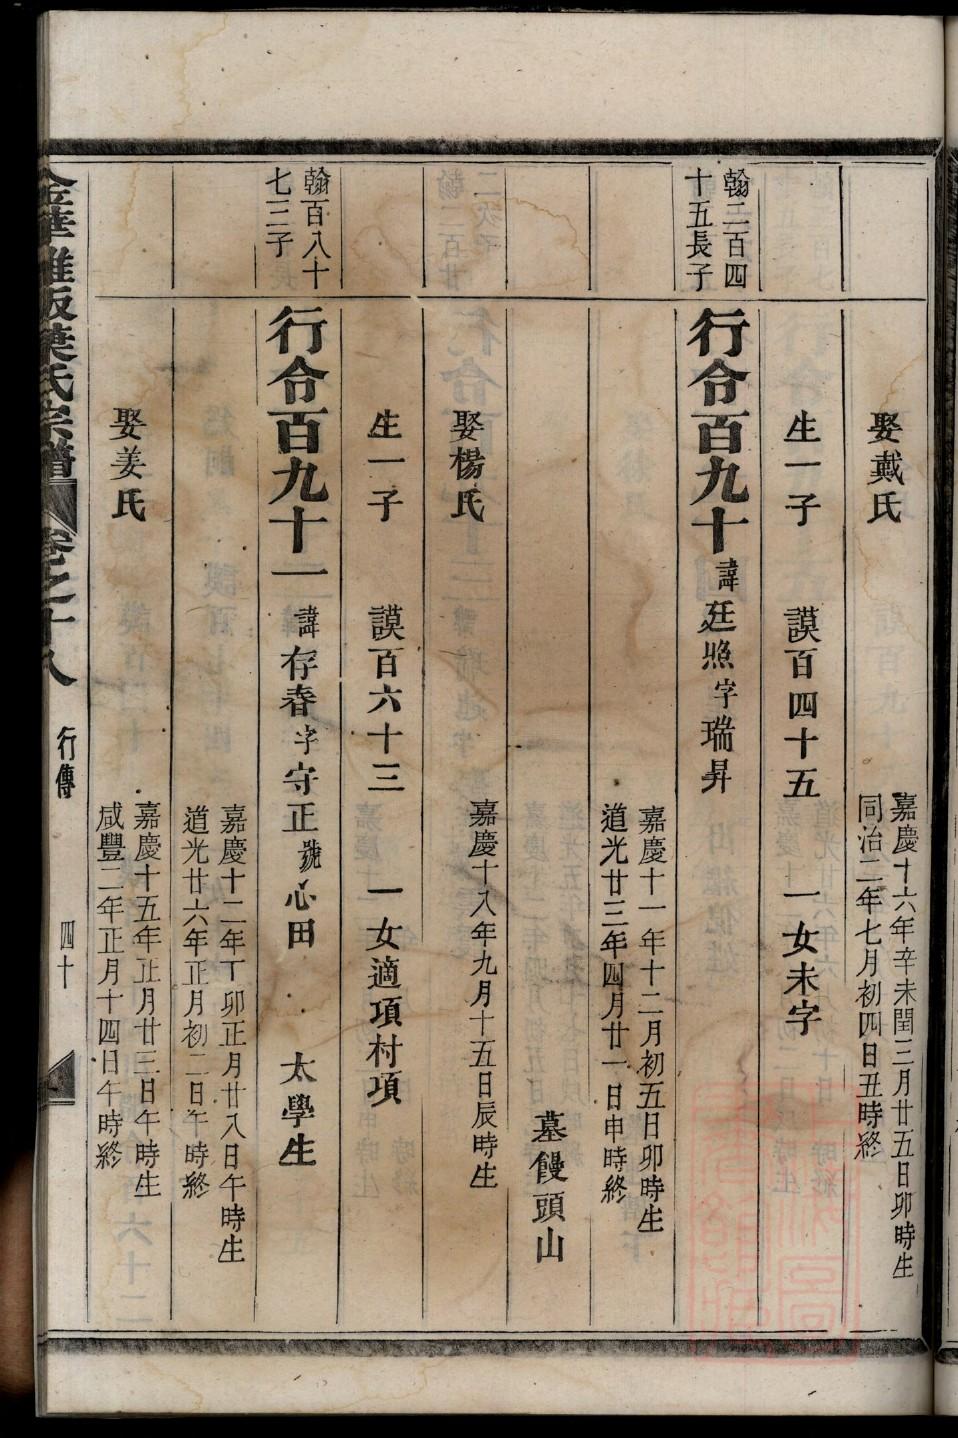 娶戴氏
嘉慶十六年辛未閏三月廿五日卯時生
同治二年七月初四日丑時終
生一子 謨百四十五 一女未字
翰二百四
十五長子
行令百九十 諱廷照字瑞昇
嘉慶十一年十二月初五日卯時生
道光廿三年四月廿一日申時終
墓饅頭山
娶楊氏 嘉慶十八年九月十五日辰時生
生一子 謨百六十三 一女適項村項
翰百八十
七三子
行令百九十一 諱存春字守正號心田 太學生
嘉慶十二年丁卯正月廿八日午時生
道光廿六年正月初二日午時終
娶姜氏
嘉慶十五年正月廿三日午時生
咸豐二年正月十四日午時終
金華雅畈葉氏宗譜 卷之十八 行傳 四十